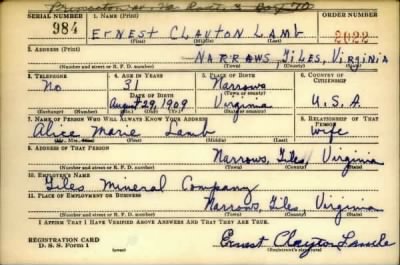 Princeton W. Va. Route 3 Box 70
SERIAL NUMBER 1. NAME (Print) ORDER NUMBER
984 ERNEST CLAYTON LAMB 2022
(First) (Middle) (Last)
2. ADDRESS (Print)
NARROWS, GILES, VIRGINIA
(Number and street or R. F. D. number) (Town) (County) (State)
3. TELEPHONE 4. AGE IN YEARS 5. PLACE OF BIRTH 6. COUNTRY OF CITIZENSHIP
No 31 Narrows
DATE OF BIRTH (Town or county)
August 29, 1909 Virginia U.S.A.
(Exchange) (Number) (Mo.) (Day) (Yr.) (State or country)
7. NAME OF PERSON WHO WILL ALWAYS KNOW YOUR ADDRESS 8. RELATIONSHIP OF THAT PERSON
Alice Marie Lamb wife
(Mr., Mrs., Miss) (First) (Middle) (Last)
9. ADDRESS OF THAT PERSON
Narrows, Giles Virginia
(Number and street or R. F. D. number) (Town) (County) (State)
10. EMPLOYER'S NAME
Giles Mineral Company
11. PLACE OF EMPLOYMENT OR BUSINESS
Narrows, Giles Virginia
(Number and street or R. F. D. number) (Town) (County) (State)
I AFFIRM THAT I HAVE VERIFIED ABOVE ANSWERS AND THAT THEY ARE TRUE.
REGISTRATION CARD
D. S. S. Form 1 Ernest Clayton
(Registrant's signature)